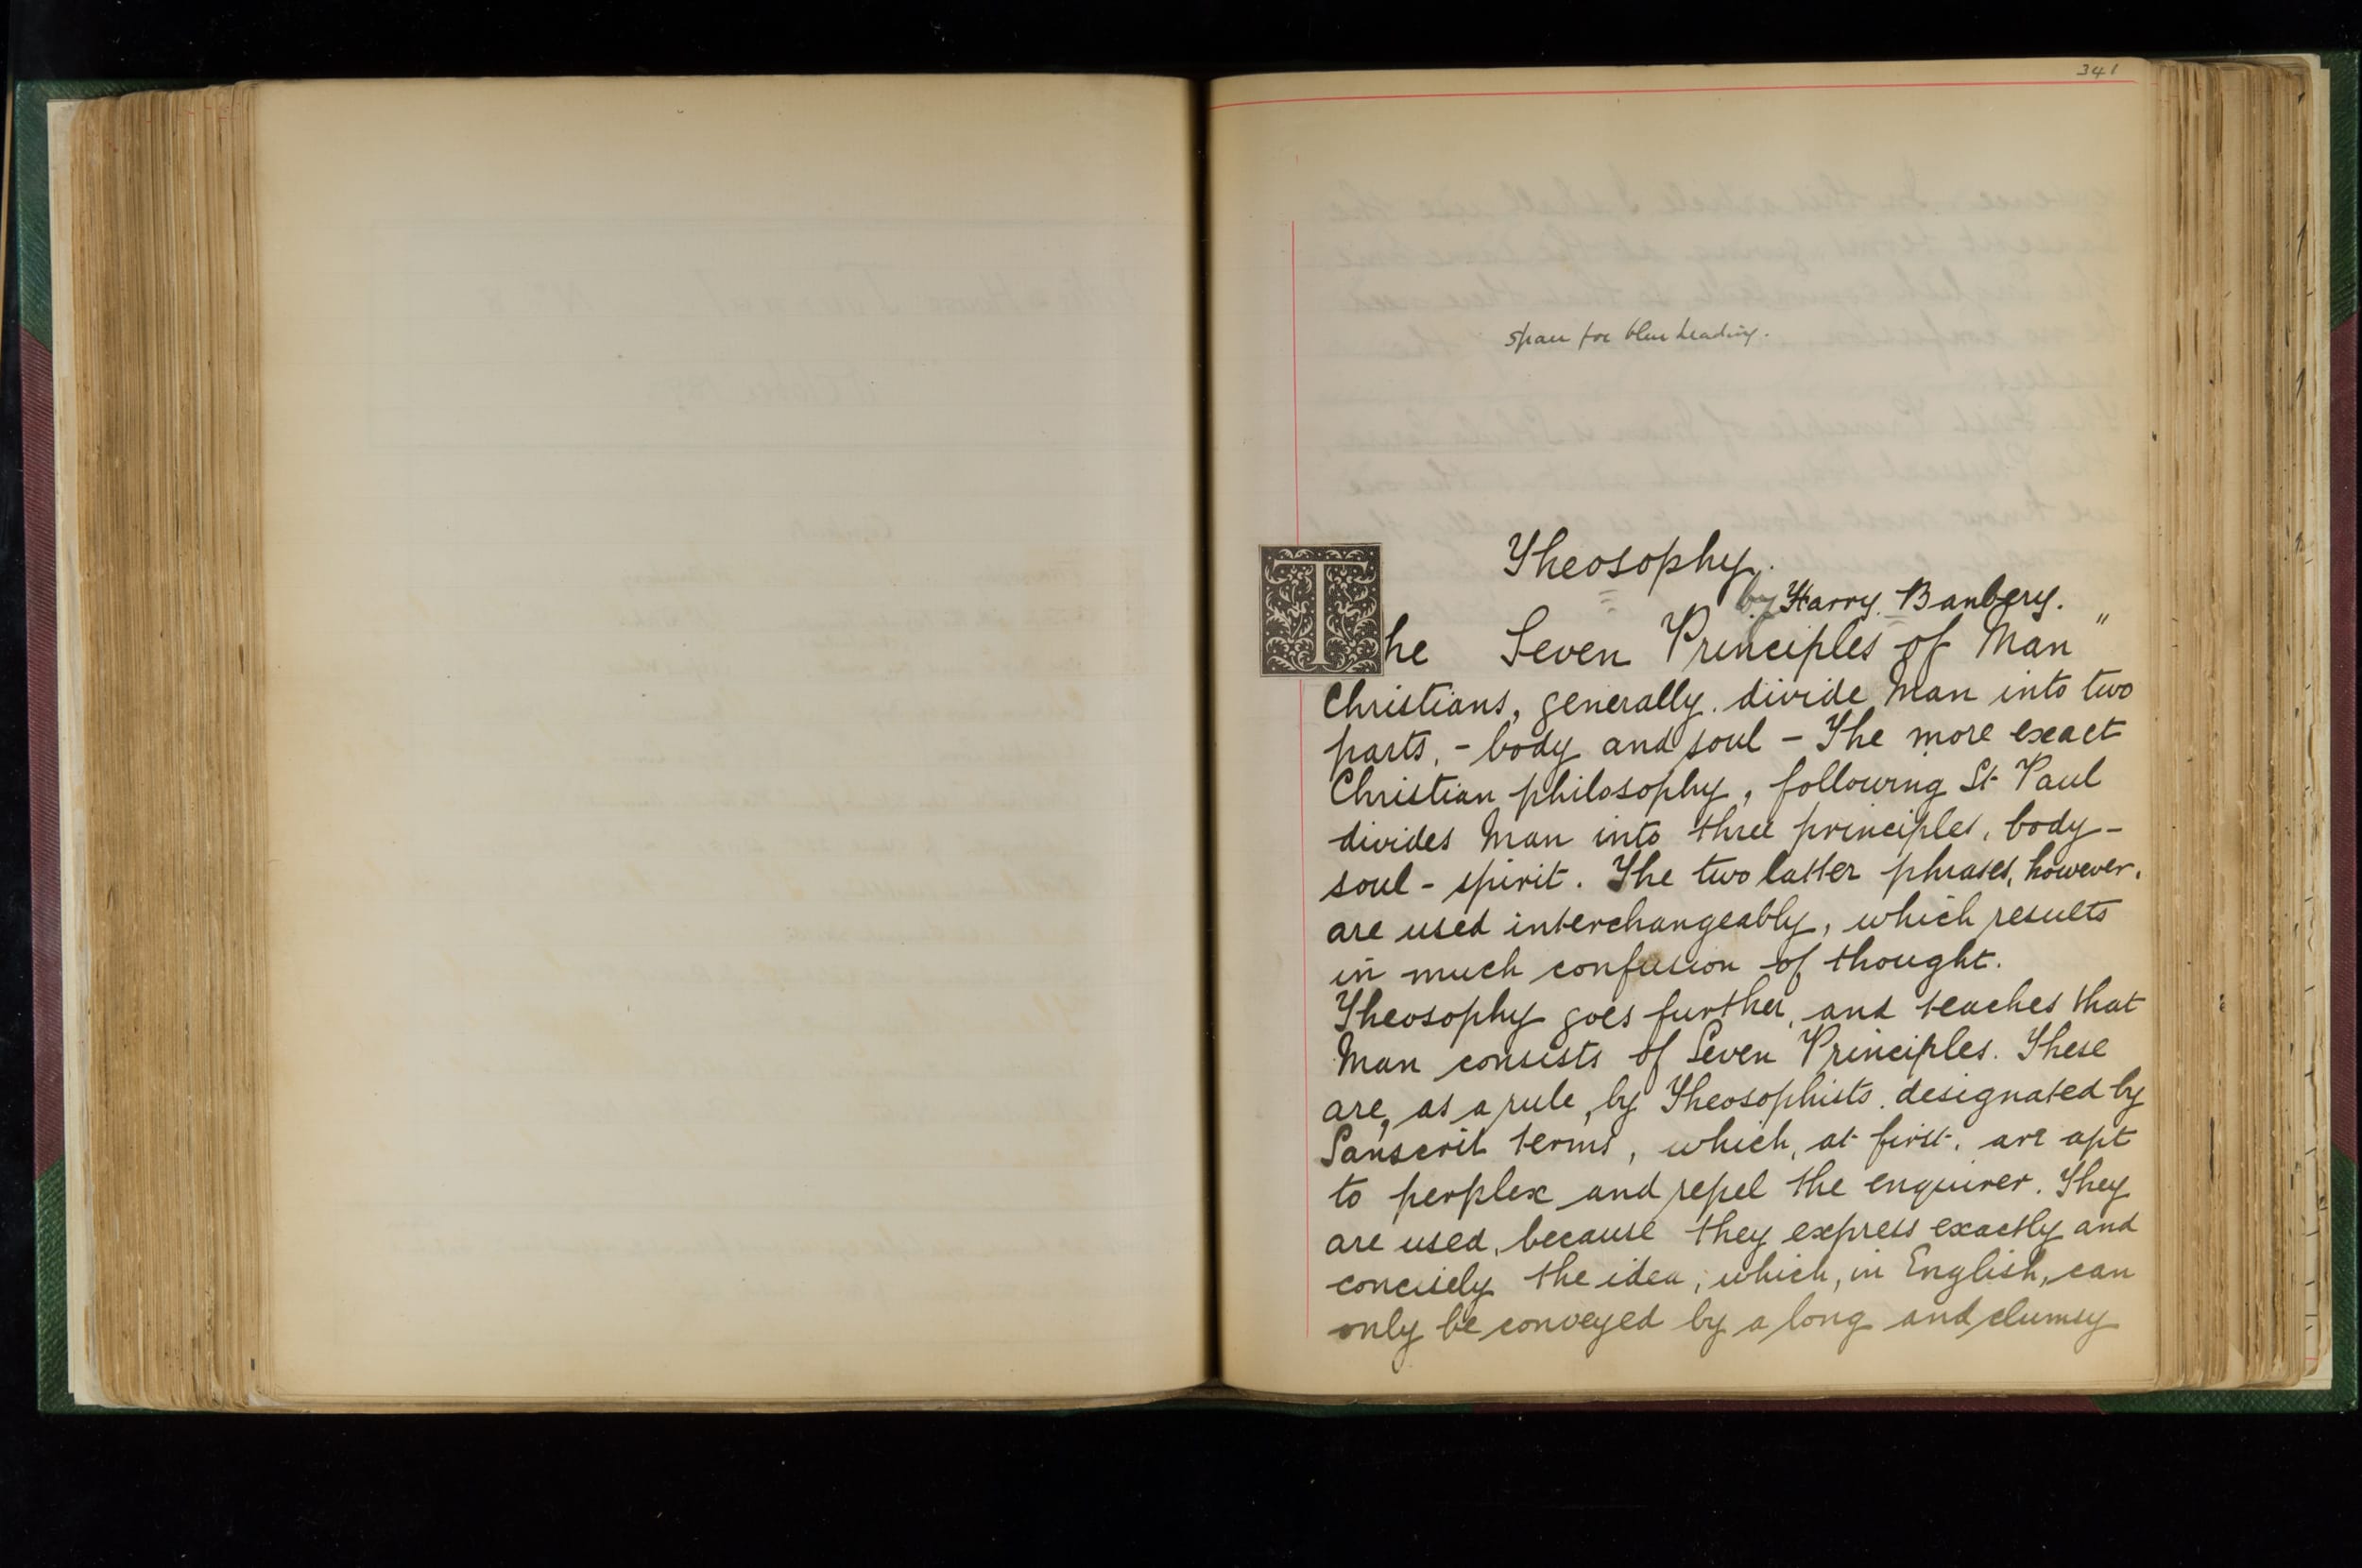 341
space for blue heading.
Theosophy.
by Harry Banbery.
The Seven Principles of Man"
Christians, generally. divide Man into two
parts, - body and soul - The more exact
Christian philosophy, following St Paul
divides Man into three principles, body -
soul - spirit. The two latter phrases, however,
are used interchangeably, which results
in much confusion of thought.
Theosophy goes further, and teaches that
Man consists of Seven Principles. These
are, as a rule, by Theosophists. designated by
Sanscrit terms, which, at first, are apt
to perplex and repel the enquirer. They
are used, because they express exactly and
concisely the idea, which, in English, can
only be conveyed by a long and clumsy